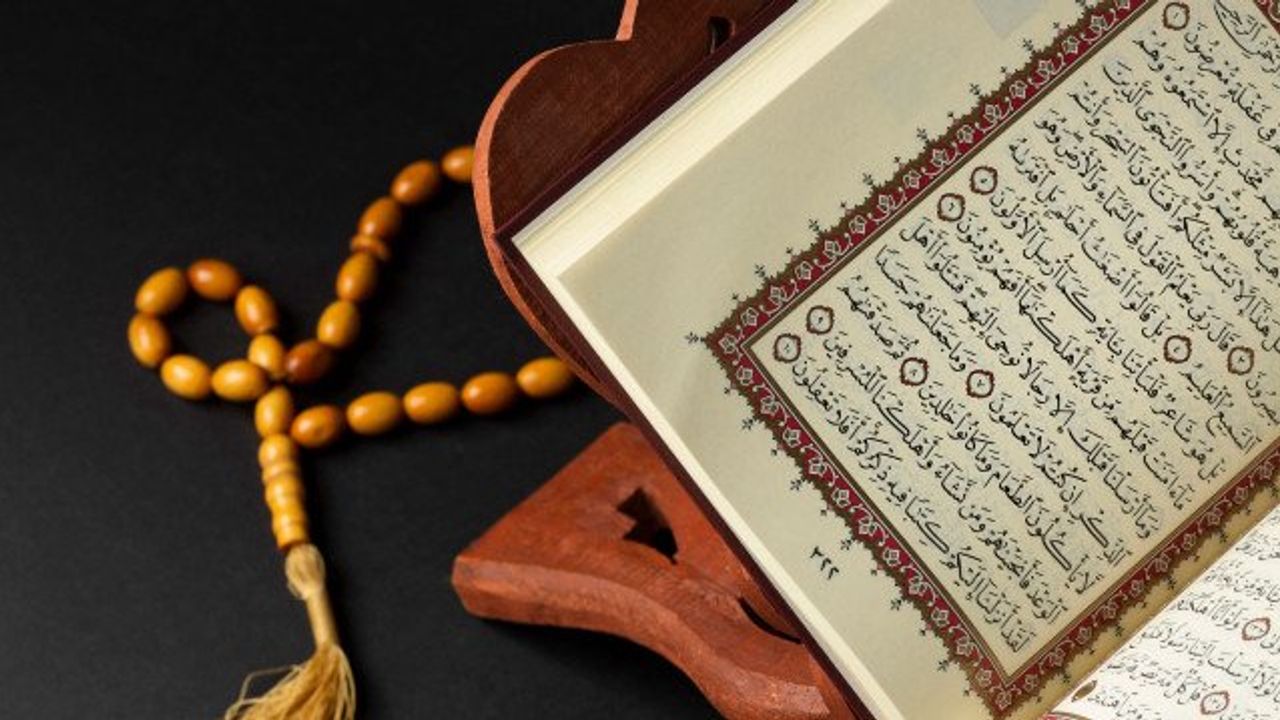 فِي غَفۡلَةٖ مُّعۡرِضُونَ ١
مُّحۡدَثٍ إِلَّا ٱسۡتَمَعُوهُ وَهُمۡ
قُلُوبُهُمۡۗ وَأَسَرُّواْ ٱلنَّجۡوَى ٱلَّذِينَ
هَلۡ هَٰذَآ إِلَّا بَشَرٞ مِّثۡلُكُمۡۖ أَفَتَأۡتُونَ ٱلسِّحۡرَ وَأَنتُمۡ
تُبۡصِرُونَ ٣ قَالَ رَبِّي يَعۡلَمُ ٱلۡقَوۡلَ فِي ٱلسَّمَآءِ وَٱلۡأَرۡضِۖ وَهُوَ
ٱلسَّمِيعُ ٱلۡعَلِيمُ ٤ بَلۡ قَالُوٓاْ أَضۡغَٰثُ أَحۡلَٰمِۭ بَلِ ٱفۡتَرَىٰهُ
بَلۡ هُوَ شَاعِرٞ فَلۡيَأۡتِنَا بِـَٔايَةٖ كَمَآ أُرۡسِلَ ٱلۡأَوَّلُونَ ٥
مَآ ءَامَنَتۡ قَبۡلَهُم مِّن قَرۡيَةٍ أَهۡلَكۡنَٰهَآۖ أَفَهُمۡ يُؤۡمِنُونَ ٦
وَمَآ أَرۡسَلۡنَا قَبۡلَكَ إِلَّا رِجَالٗا نُّوحِيٓ إِلَيۡهِمۡۖ فَسۡـَٔلُوٓاْ أَهۡلَ
ٱلذِّكۡرِ إِن كُنتُمۡ لَا تَعۡلَمُونَ ٧ وَمَا جَعَلۡنَٰهُمۡ جَسَدٗا
لَّا يَأۡكُلُونَ ٱلطَّعَامَ وَمَا كَانُواْ خَٰلِدِينَ ٨ ثُمَّ صَدَقۡنَٰهُمُ
ٱلۡوَعۡدَ فَأَنجَيۡنَٰهُمۡ وَمَن نَّشَآءُ وَأَهۡلَكۡنَا ٱلۡمُسۡرِفِينَ ٩
لَقَدۡ أَنزَلۡنَآ إِلَيۡكُمۡ كِتَٰبٗا فِيهِ ذِكۡرُكُمۡۚ أَفَلَا تَعۡقِلُونَ ١٠
٣٢٢